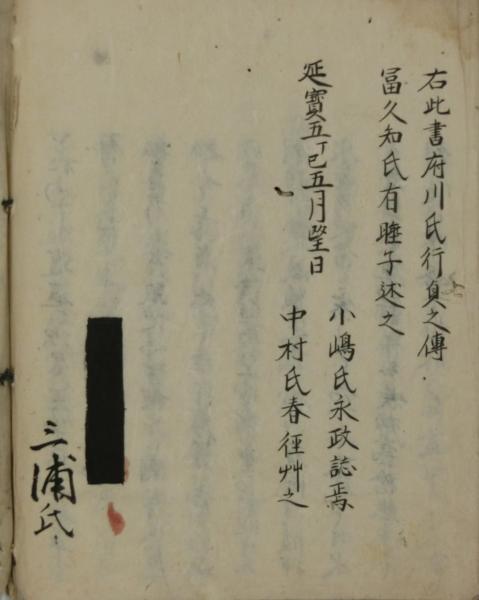 右此書府川氏行貞之傳
冨久知氏有睡子述之
延寳五丁巳五月望日
小嶋氏永政誌焉
中村氏春径艸之
三浦氏